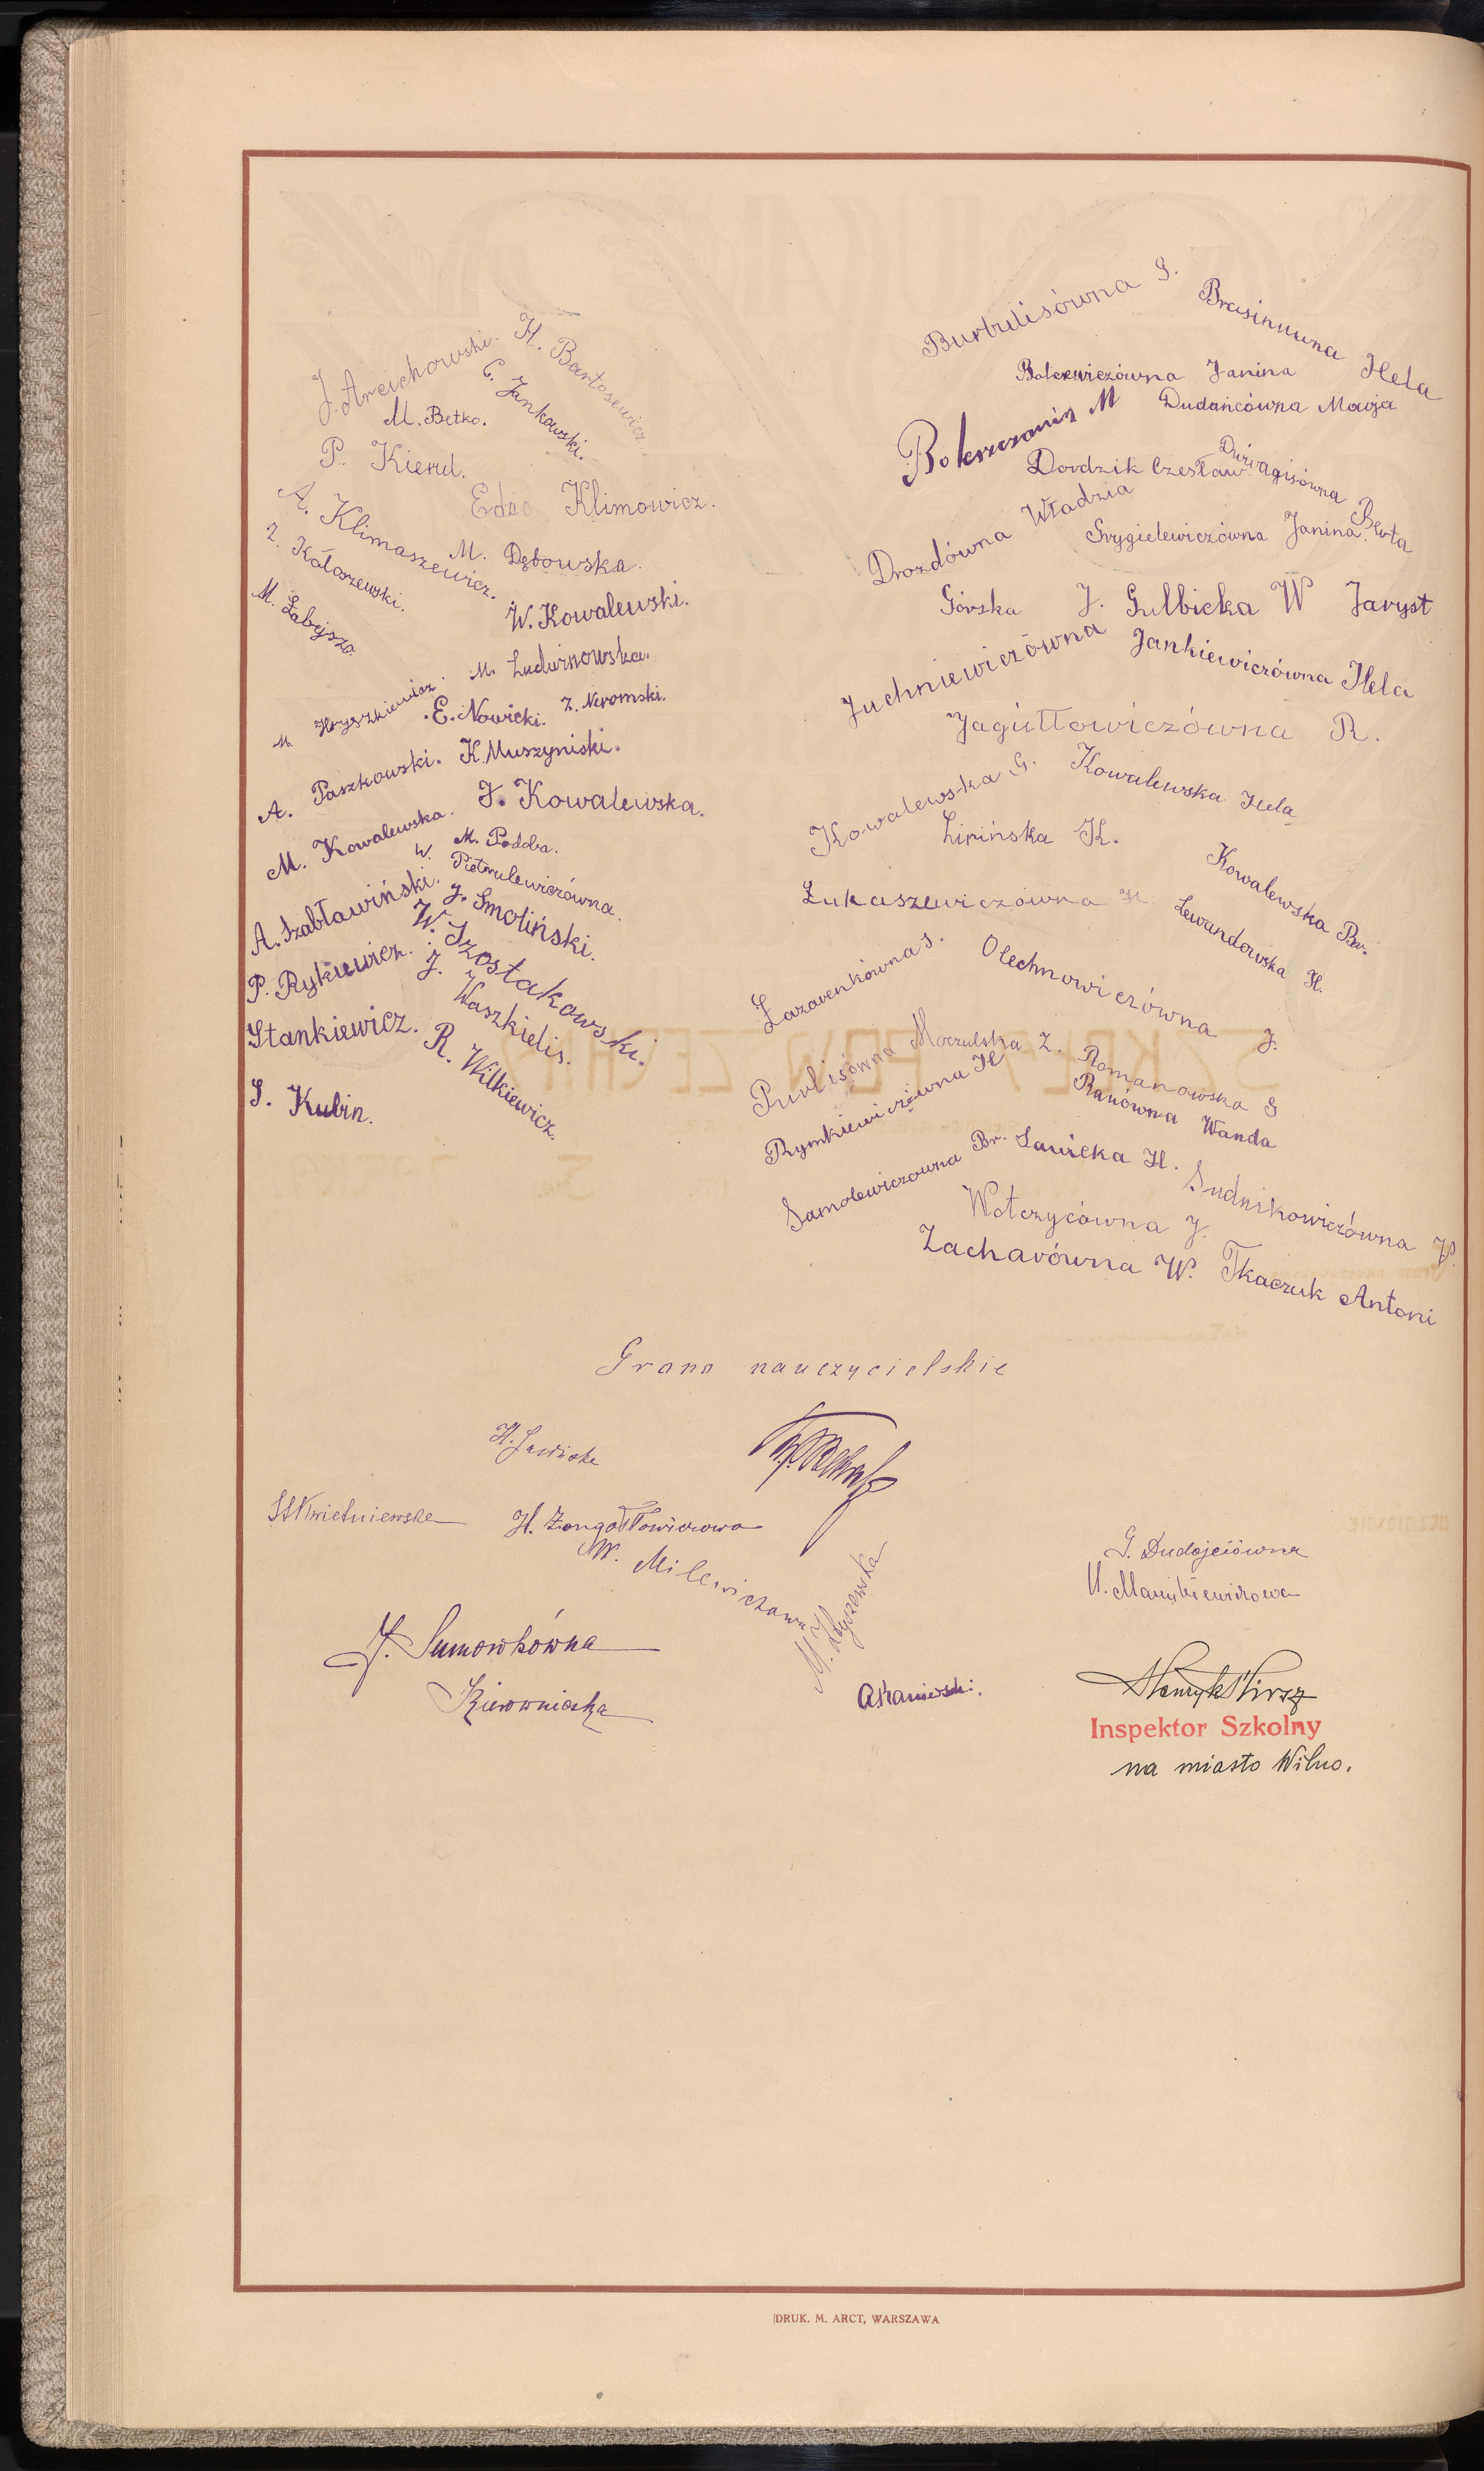 J. Arcichowski.
H. Bartosewicz.
C. Jankowski.
M. Betko.
P. Kierul.
Edzio Klimowicz.
A. Klimaszewicz.
M. Dębowska.
Z. Kołoszewski.
W. Kowalewski.
M. Łabejszo.
M. Ludwinowska.
M. Hryszkiewicz.
E. Nowicki.
Z. Neromski.
A. Paszkowski.
K. Muszyniski.
J. Kowalewska.
M. Kowalewska.
M. Podoba.
W. Pietrulewiczówna.
A. Szabławiński.
J. Smoliński.
P. Rykiewicz.
W. Szostakowski.
J. Waszkielis.
Stankiewicz.
R. Wilkiewicz.
S. Kubin.
Burbulisówna S.
Brasinuwna Hela
Bolcewiczówna Janina
Dudańcówna Marja
M
Dordzik Czesław
Berta
Drozdówna Władzia
Grygielewiczówna Janina
Górska J.
Gulbicka W
Jaryst
Juchniewiczówna
Jankiewiczówna Hela
Jagiułłowiczówna R.
Kowalewska G.
Kowalewska Hela
Lipińska K.
Kowalewska Br.
Łukaszewiczówna H.
Lewandowska H.
Łazarenkówna S.
Olechnowiczówna J.
Moczulska Z.
Purlisówna
Romanowska S
Rymkiewiczówna H
Ranówna Wanda
Samolewiczowna Br.
Sawicka H.
Sudnikowiczówna W.
Wołczycówna J.
Zacharówna W.
Tkaczuk Antoni
Grono nauczycielskie
H. Sawicka
S. Kwietniewska
H. Zongołłowiczowa
W. Milewiczowa
G. Dudojciówna
J. Sumorkówna
Kierowniczka
A Kaniewski.
Henryk Wirsz
Inspektor Szkolny
na miasto Wilno.
DRUK. M. ARCT, WARSZAWA